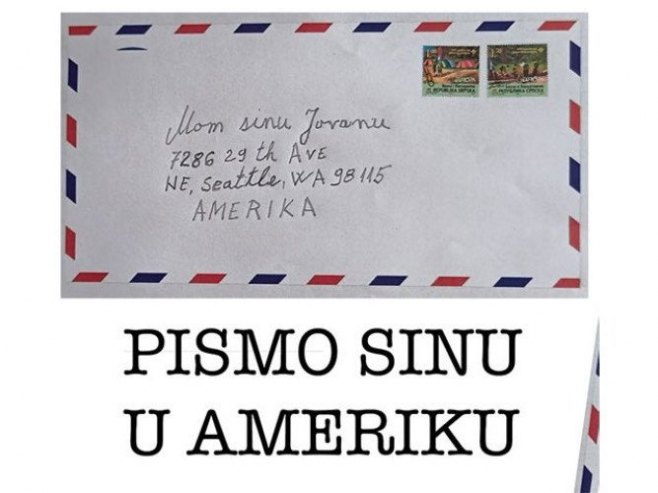 Mom sinu Jovanu
7286 29 th AVE
NE, Seattle, WA 98115
AMERIKA
PISMO SINU
U AMERIKU